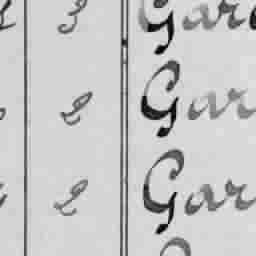 3 Gar
2 Gar
2 Gar